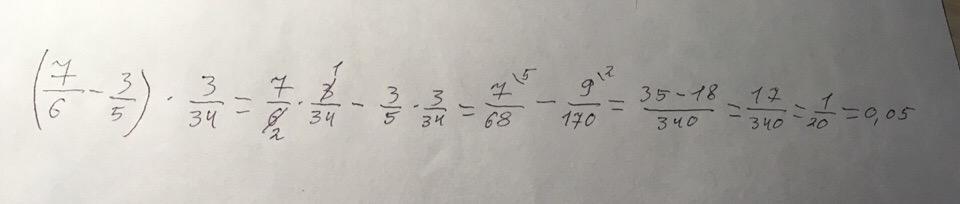 (7/6 - 3/5) · 3/34 = 7/6 2 · 3 1/34 - 3/5 · 3/34 = 7\5/68 - 9\2/170 = 35-18/340 = 17/340 = 1/20 = 0,05